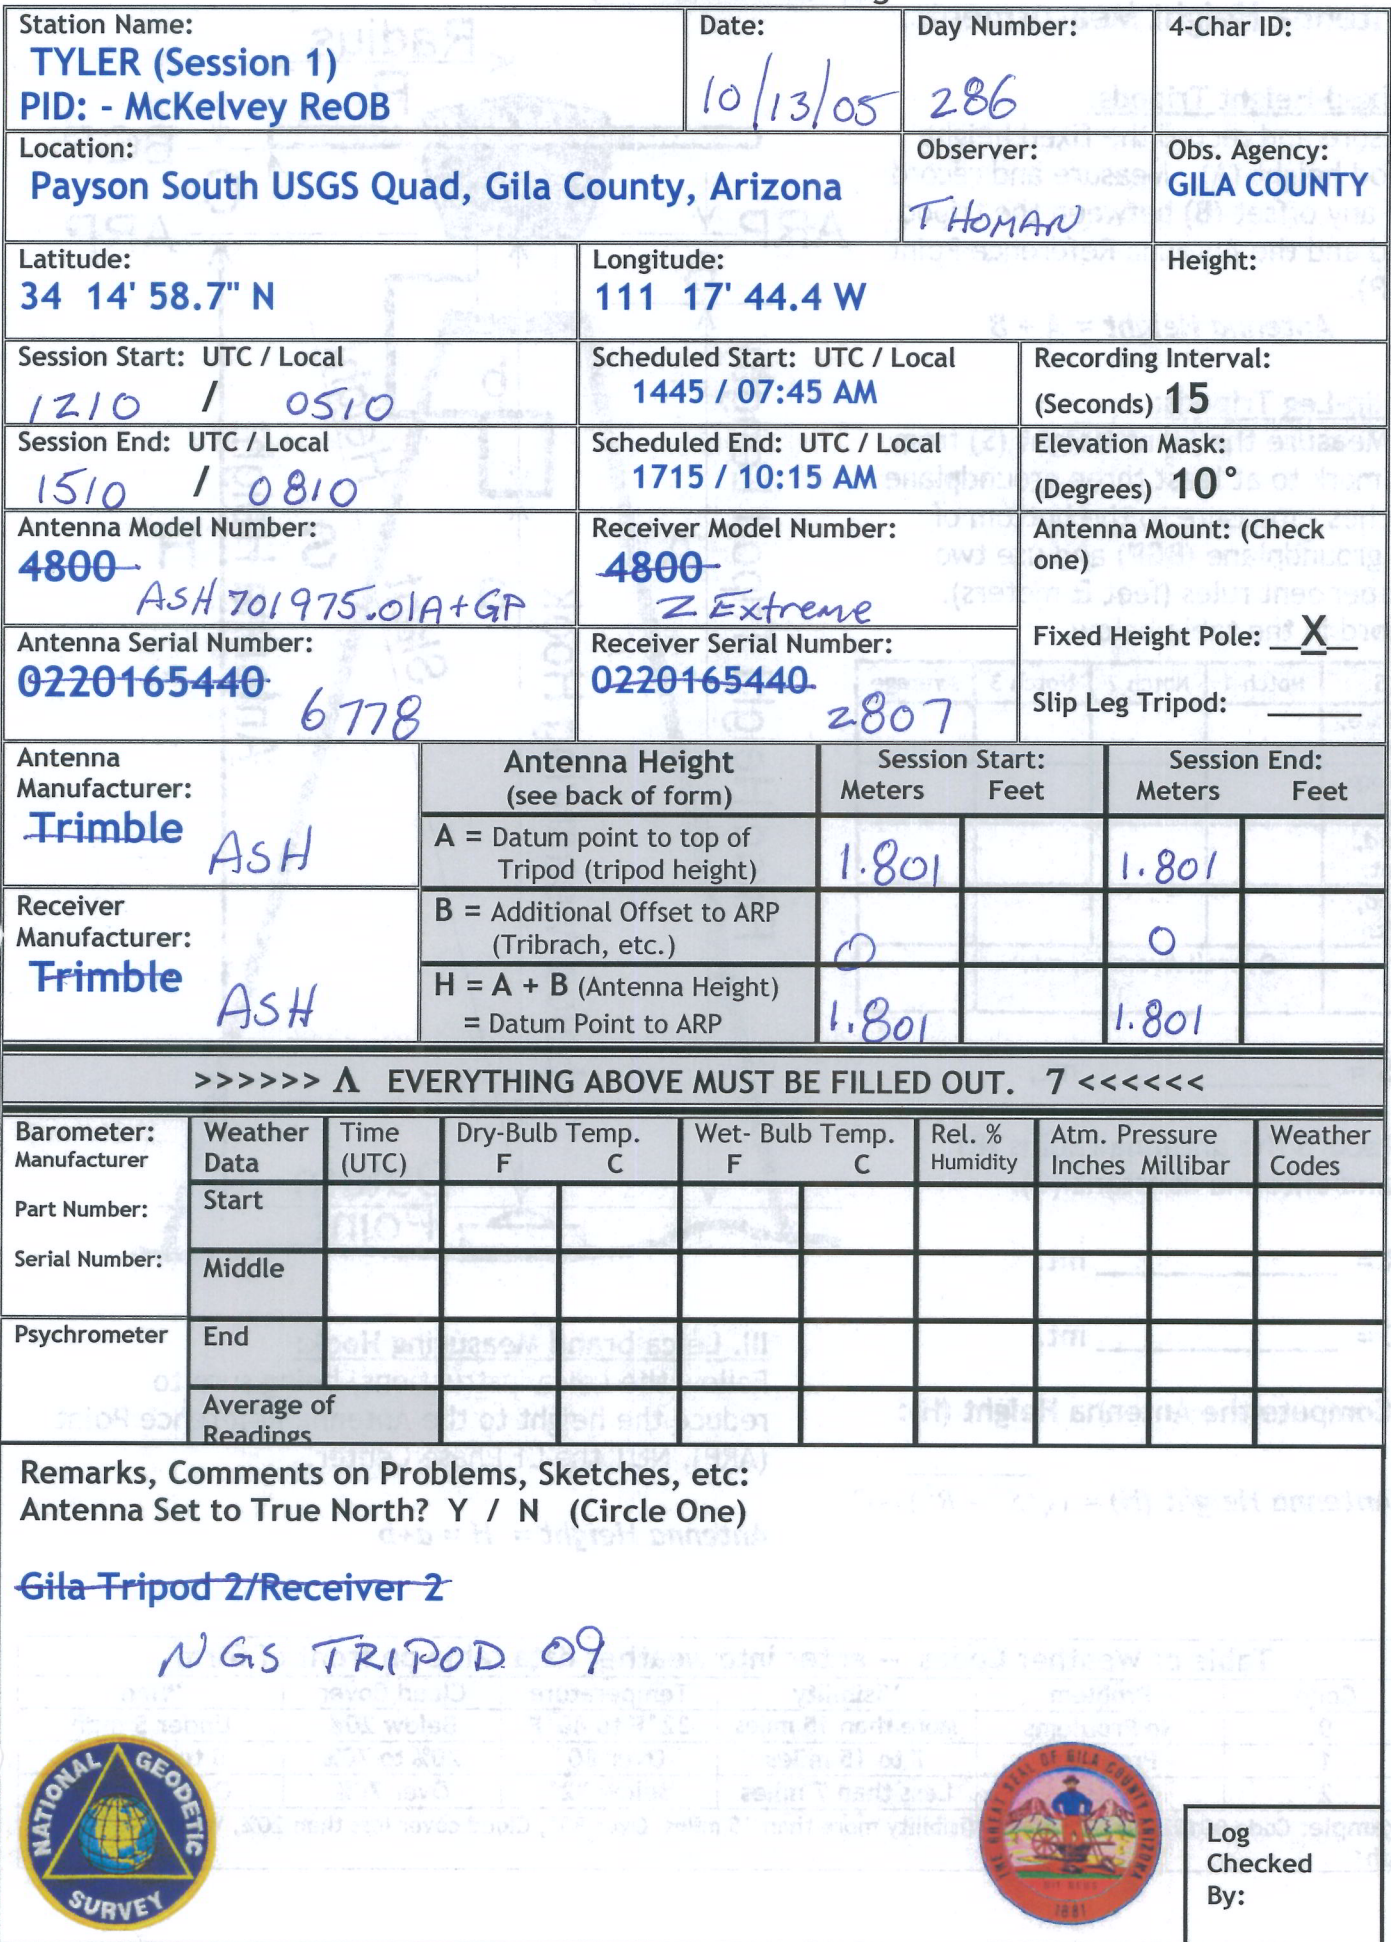 Station Name:
TYLER (Session 1)
PID: - McKelvey ReOB
Date:
10/13/05
Day Number:
286
4-Char ID:
Location:
Payson South USGS Quad, Gila County, Arizona
Observer:
THOMAN
Obs. Agency:
GILA COUNTY
Latitude:
34 14' 58.7" N
Longitude:
111 17' 44.4 W
Height:
Session Start: UTC / Local
1210 / 0510
Scheduled Start: UTC / Local
1445 / 07:45 AM
Recording Interval:
(Seconds) 15
Session End: UTC / Local
1510 / 0810
Scheduled End: UTC / Local
1715 / 10:15 AM
Elevation Mask:
(Degrees) 10°
Antenna Model Number:
4800
ASH 701975.01A+GP
Receiver Model Number:
4800
Z Extreme
Antenna Mount: (Check
one)
Fixed Height Pole: __X__
Slip Leg Tripod: ______
Antenna Serial Number:
0220165440
6778
Receiver Serial Number:
0220165440
2807
Antenna
Manufacturer:
Trimble
ASH
Receiver
Manufacturer:
Trimble
ASH
Antenna Height
(see back of form)
Session Start:
Meters Feet
Session End:
Meters Feet
A = Datum point to top of
Tripod (tripod height)
1.801
1.801
B = Additional Offset to ARP
(Tribrach, etc.)
0
0
H = A + B (Antenna Height)
= Datum Point to ARP
1.801
1.801
>>>>>> Λ EVERYTHING ABOVE MUST BE FILLED OUT. 7 <<<<<<
Barometer:
Manufacturer
Part Number:
Serial Number:
Psychrometer
Weather
Data
Time
(UTC)
Dry-Bulb Temp.
F C
Wet- Bulb Temp.
F C
Rel. %
Humidity
Atm. Pressure
Inches Millibar
Weather
Codes
Start
Middle
End
Average of
Readings
Remarks, Comments on Problems, Sketches, etc:
Antenna Set to True North? Y / N (Circle One)
Gila Tripod 2/Receiver 2
NGS TRIPOD 09
NATIONAL GEODETIC SURVEY
THE GREAT SEAL OF GILA COUNTY ARIZONA
1881
Log
Checked
By: